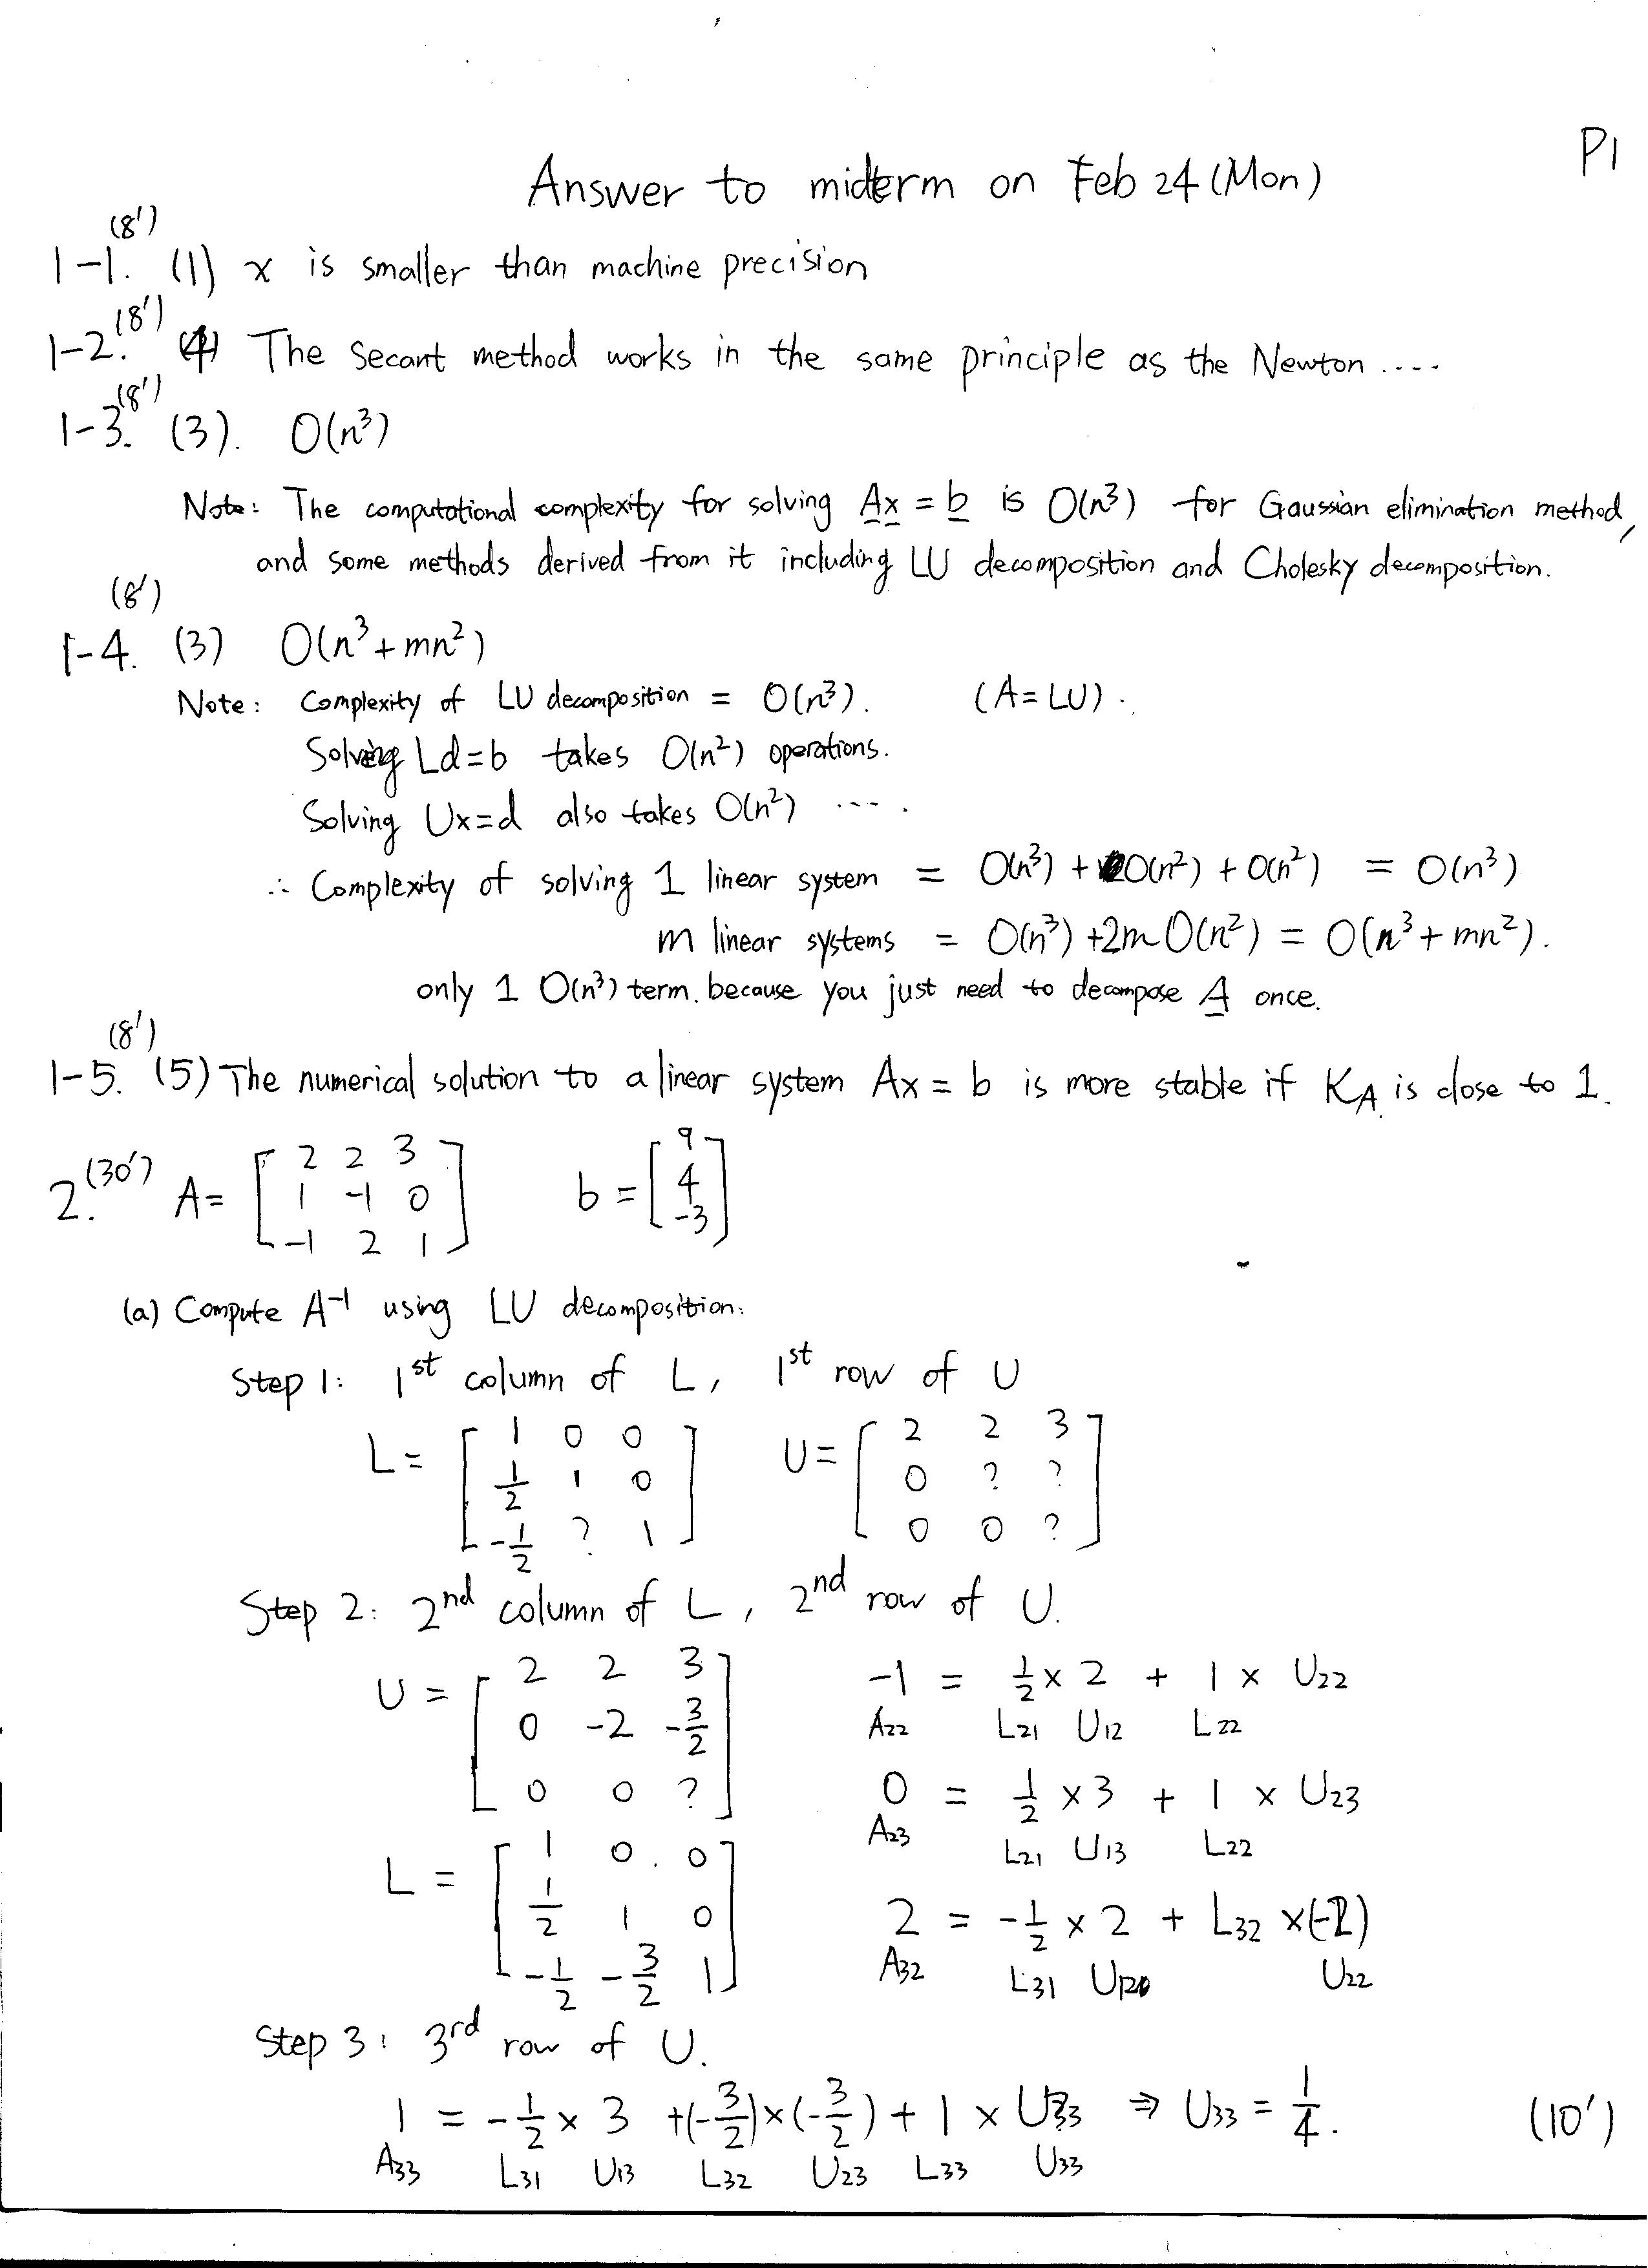 P1
Answer to midterm on Feb 24 (Mon)
(8')
1-1. (1) x is smaller than machine precision
(8')
1-2. (4) The Secant method works in the same principle as the Newton ....
(8')
1-3. (3). O(n³)
Note: The computational complexity for solving Ax = b is O(n³) for Gaussian elimination method,
and some methods derived from it including LU decomposition and Cholesky decomposition.
(8')
1-4. (3) O(n³ + mn²)
Note: Complexity of LU decomposition = O(n³). (A = LU).
Solving Ld = b takes O(n²) operations.
Solving Ux = d also takes O(n²) ....
∴ Complexity of solving 1 linear system = O(n³) + O(n²) + O(n²) = O(n³)
m linear systems = O(n³) + 2m O(n²) = O(n³ + mn²).
only 1 O(n³) term. because you just need to decompose A once.
(8')
1-5. (5) The numerical solution to a linear system Ax = b is more stable if K_A is close to 1.
2. (30') A = [ 2 2 3 b = [ 9
1 -1 0 4
-1 2 1 ] -3 ]
(a) Compute A⁻¹ using LU decomposition:
Step 1: 1st column of L, 1st row of U
L = [ 1 0 0 U = [ 2 2 3
1/2 1 0 0 ? ?
-1/2 ? 1 ] 0 0 ? ]
Step 2: 2nd column of L, 2nd row of U.
U = [ 2 2 3 -1 = 1/2 × 2 + 1 × U22
0 -2 -3/2 A22 L21 U12 L22
0 0 ? ] 0 = 1/2 × 3 + 1 × U23
A23 L21 U13 L22
L = [ 1 0 0
1/2 1 0 2 = -1/2 × 2 + L32 × (-2)
-1/2 -3/2 1 ] A32 L31 U12 U22
Step 3: 3rd row of U.
1 = -1/2 × 3 + (-3/2) × (-3/2) + 1 × U33 ⇒ U33 = 1/4. (10')
A33 L31 U13 L32 U23 L33 U33